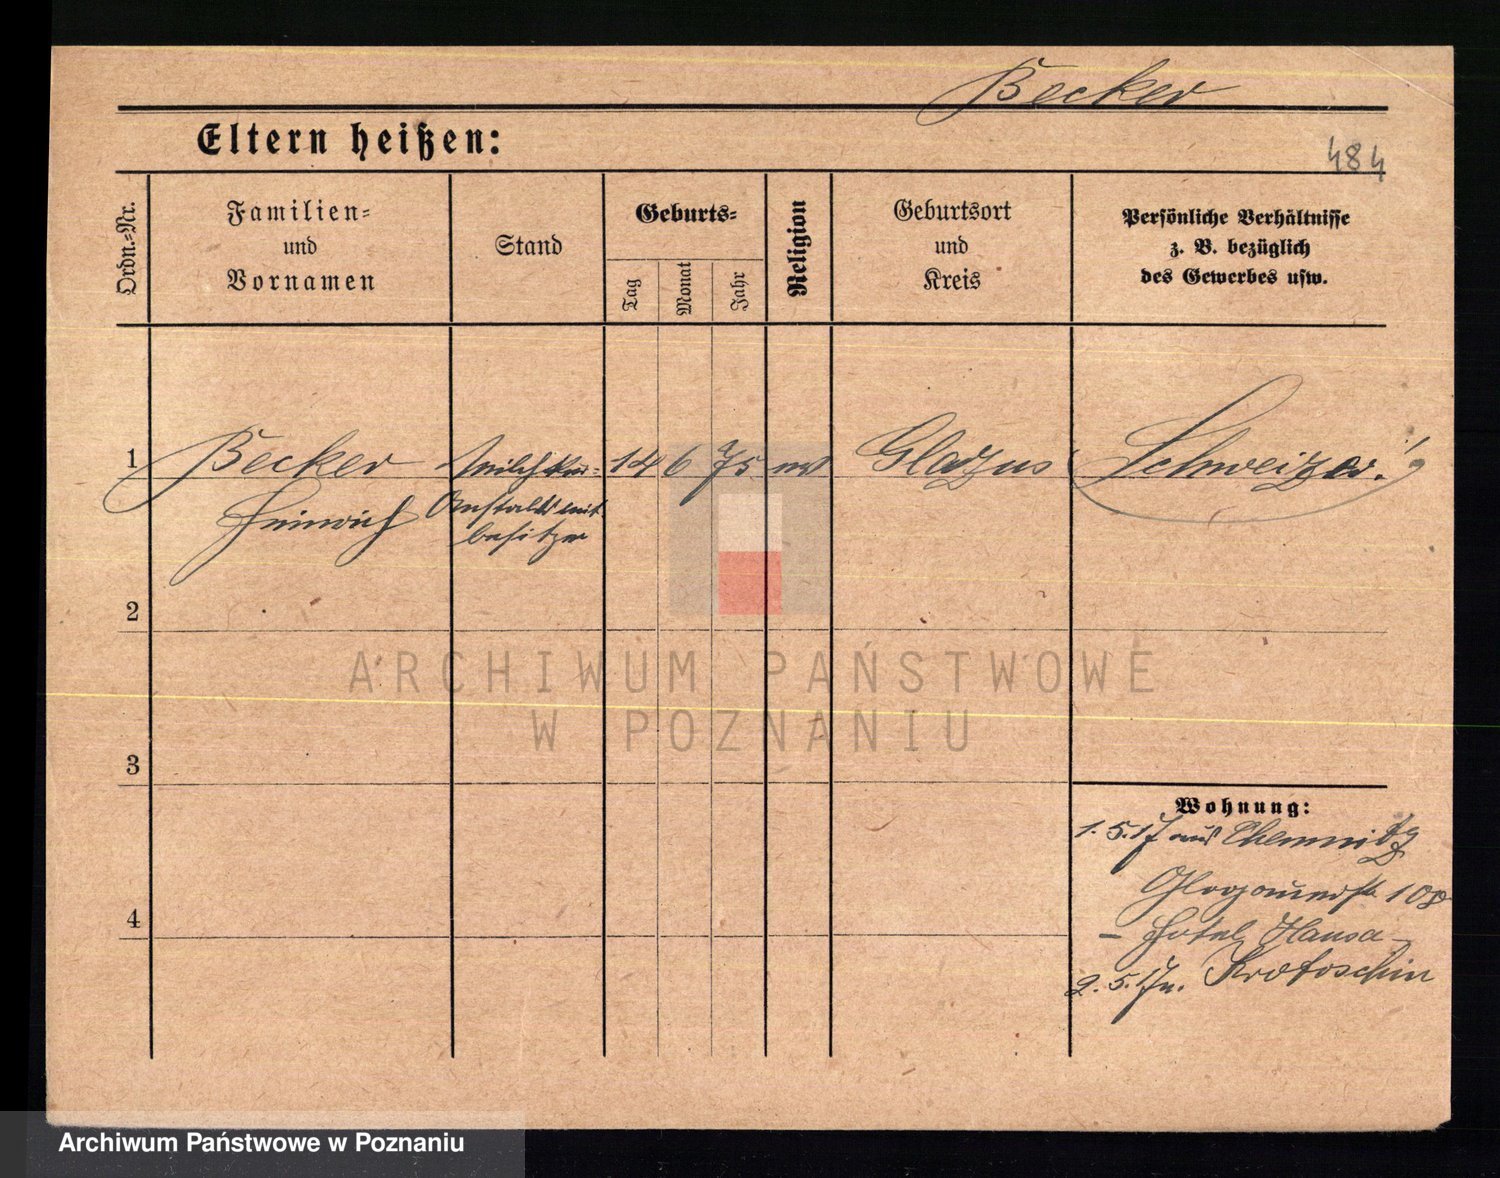 Becker
Eltern heißen:
484
Ordn.=Nr.
Familien=
und
Vornamen
Stand
Geburts=
Tag
Monat
Jahr
Religion
Geburtsort
und
Kreis
Persönliche Verhältnisse
z. B. bezüglich
des Gewerbes usw.
1
Becker
Heinrich
Milchkur=
besitzer
14
6
75
Schweizer!
2
3
4
Wohnung:
1. 5. 17 aus Chemnitz
Glogauerstr 108
– Hotel Hansa –
2. 5. 17 n. Krotoschin
ARCHIWUM PAŃSTWOWE
W POZNANIU
Archiwum Państwowe w Poznaniu